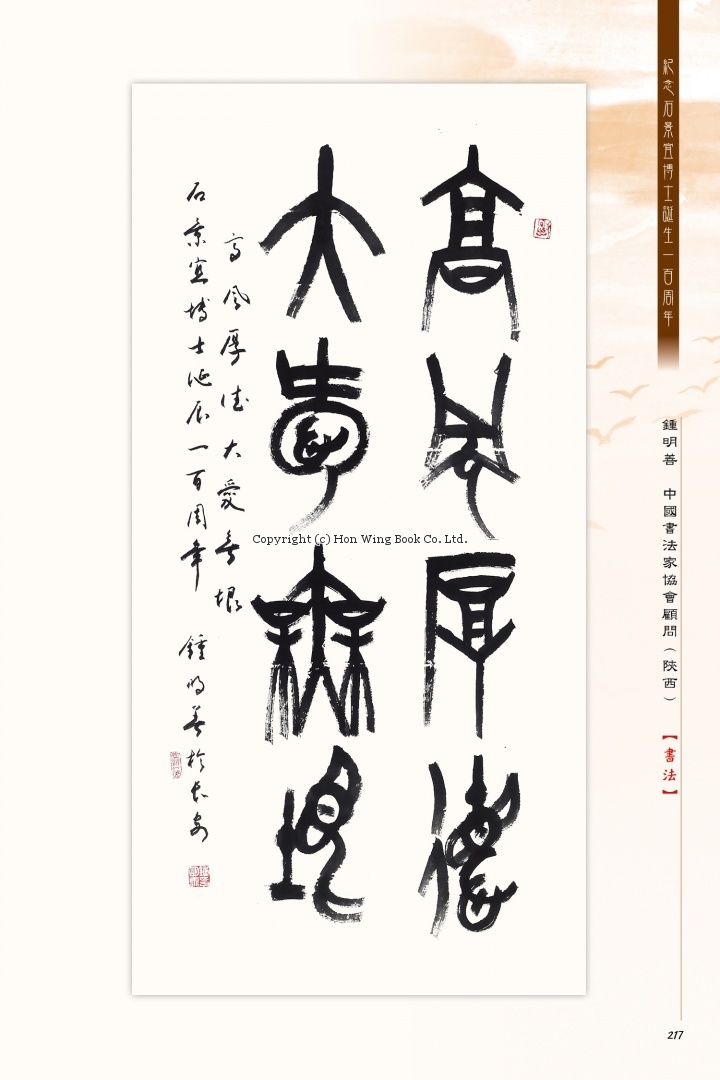 紀念石景宜博士誕生一百周年
鍾明善 中國書法家協會顧問（陝西）
【書法】
高風厚德
大愛無垠
高風厚德大愛無垠
石景宜博士誕辰一百周年 鍾明善於長安
Copyright (c) Hon Wing Book Co. Ltd.
217